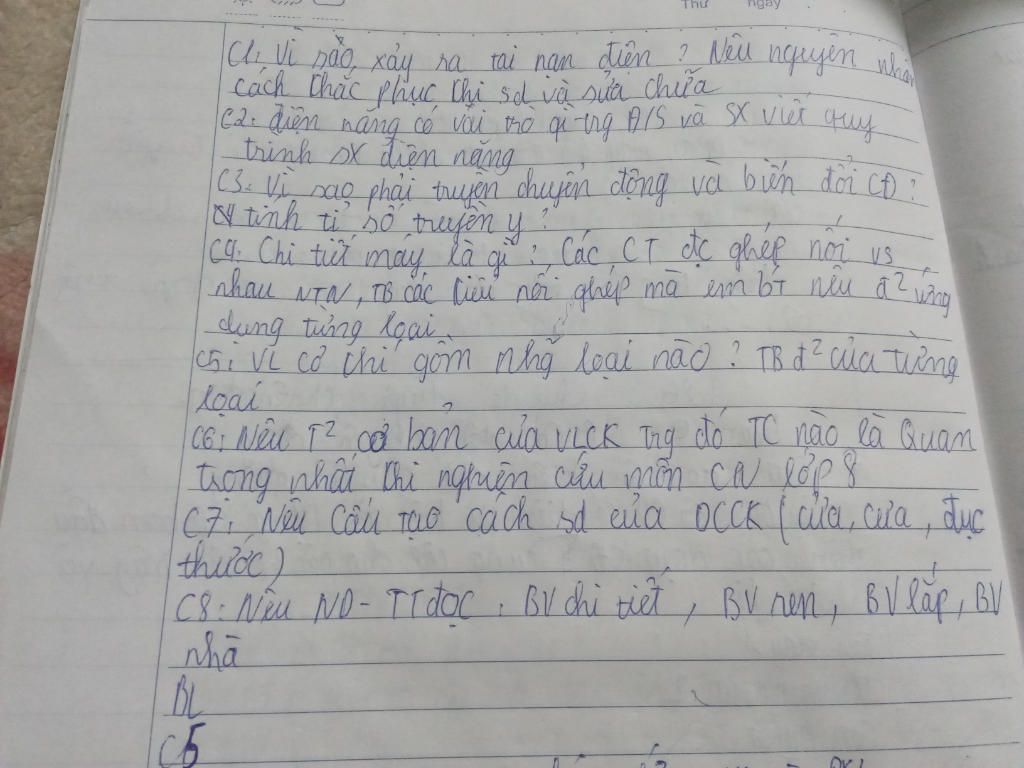 Thứ ngày
C1: Vì sao xảy ra tai nạn điện? Nêu nguyên nhân
cách khắc phục khi sd và sửa chữa
C2: điện năng có vai trò gì trg Đ/S và SX viết quy
trình sx điện năng
C3: Vì sao phải truyền chuyển động và biến đổi CĐ?
tính tỉ số truyền y?
C4: Chi tiết máy là gì? Các CT đc ghép nối vs
nhau NTN, TB các kiểu nối ghép mà em bt nêu đ² ứng
dụng từng loại
C5: VL cơ khí gồm nhg loại nào? TB đ² của từng
loại
C6: Nêu T² cơ bản của VLCK trg đó TC nào là Quan
trọng nhất khi nghiên cứu môn CN lớp 8
C7: Nêu Cấu tạo cách sd của DCCK (cửa, cưa, đục
thước)
C8: Nêu ND - TT đọc: BV chi tiết, BV ren, BV lắp, BV
nhà
BL
C5